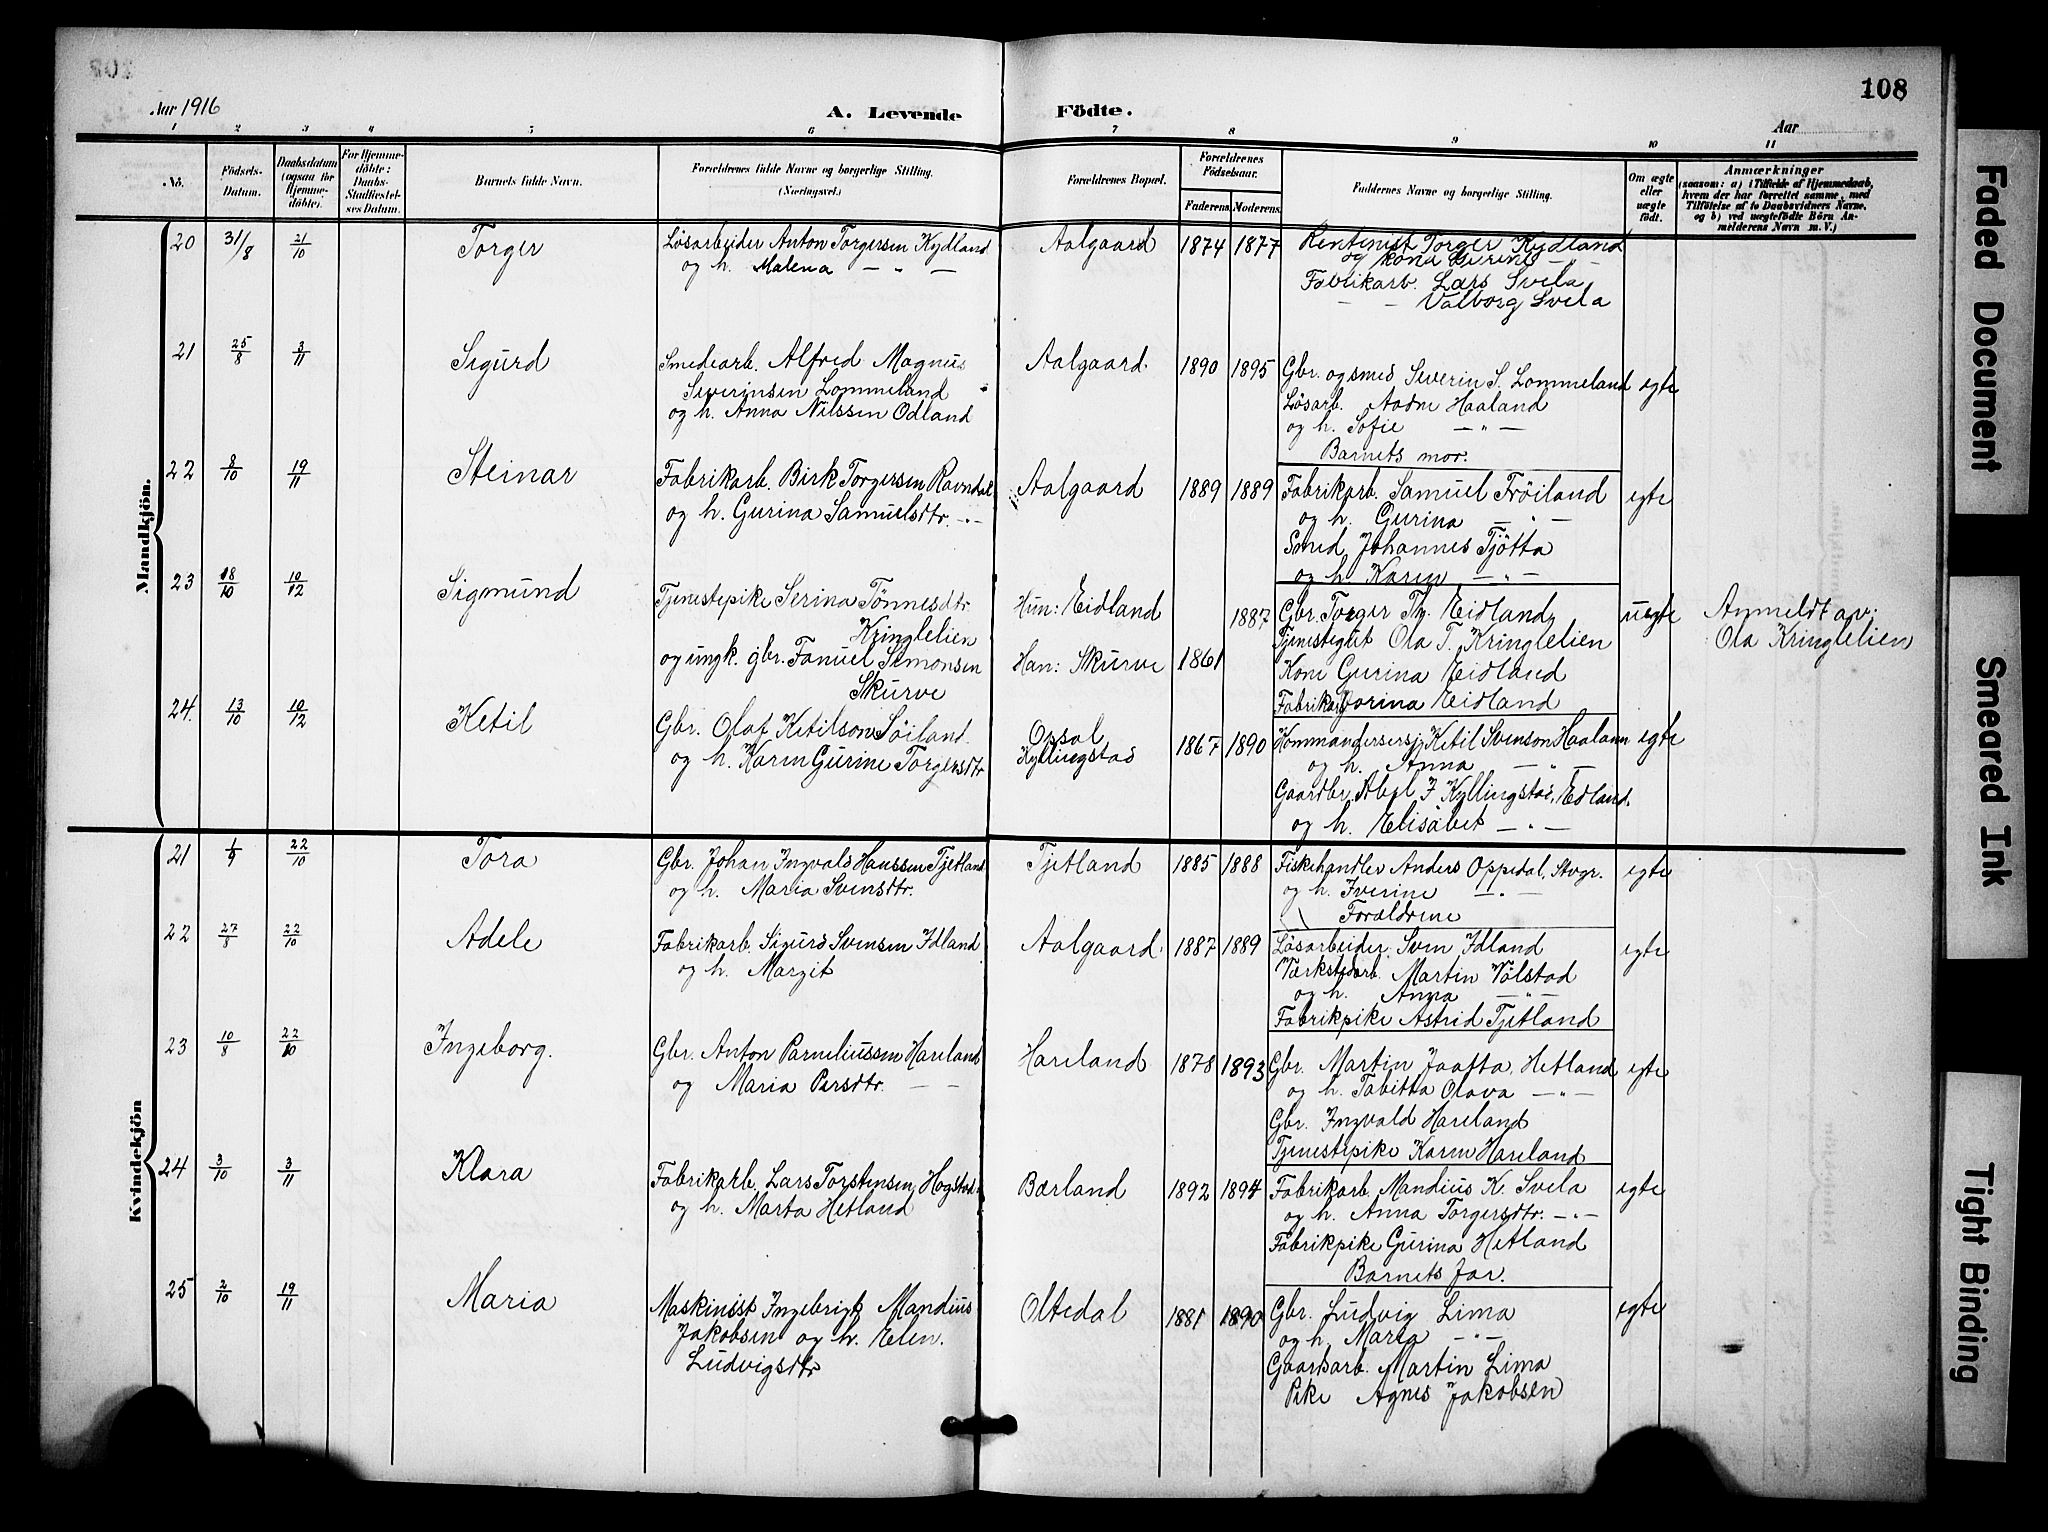 108
Aar 1916
A. Levende Födte.
Aar
1 2 3 4 5 6 7 8 9 10 11
No.
Födsels-Datum.
Daabsdatum (ogsaa för Hjemme-döbte).
For Hjemme-döbte: Daabs-Stadfæstel-ses Datum.
Barnets fulde Navn.
Forældrenes fulde Navne og borgerlige Stilling. (Næringsvei.)
Forældrenes Bopæl.
Forældrenes Födselsaar.
Faderens. Moderens.
Faddernes Navne og borgerlige Stilling.
Om ægte eller uægte födt.
Anmærkninger
(saasom: a) i Tilfælde af Hjemmedaab, hvem der har forrettet samme, med Tilföielse af to Daabsvidners Navne, og b) ved uægtefödte Börn An-melderens Navn m. V.)
Mandkjön.
20 31/8 21/10 Torger
Løsarbeider Anton Torgersen Kydland
og h. Malena — " —
Aalgaard 1874 1877
Rentenist Torger Kydland
og kona Serine — " —
Fabrikarb. Lars Svela
— — Valborg Svela
21 25/8 3/11 Sigurd
Smedearb. Alfred Magnus
Severinsen Lommeland
og h. Anna Nilssen Odland
Aalgaard. 1890 1895
Gbr. og smed Severin S. Lommeland egte
Løsarb. Aadne Haaland
og h. Sofie — " —
Barnets mor.
22 8/10 19/11 Steinar
Fabrikarb. Birk Torgersen Ravndal
og h. Gurina Samuelsdtr. — " —
Aalgaard 1889 1889
Fabrikarb. Samuel Tröiland egte
og h. Gurina — " —
Smed Johannes Tjötta
og h. Karen — " —
23 18/10 10/12 Sigmund
Tjenestepike Serina Tönnesdtr.
Kringlelien
og ungk. gbr. Fanuel Simonsen
Skurve
Hun: Eidland 1887
Han: Skurve 1861
Gbr. Torger Th. Eidland, uegte
Tjenestegut Ola T. Kringlelien
Kone Gurina Eidland
Fabrikarb Dorina Eidland
Anmeldt av:
Ola Kringlelien
24. 13/10 10/12 Ketil
Gbr. Olaf Ketilson Söiland
og h. Karen Gurine Torgersdtr
Opsal
Kyllingstad 1867 1890
Kommandersersj. Ketil Svenson Haaland egte
og h. Anna — " —
Gaardbr. Abel J Kyllingstad, Edland.
og h. Elisabet — " —
Kvindekjön
21 1/9 22/10 Tora
Gbr. Johan Ingvald Hanssen Tjetland
og h. Maria Svensdtr.
Tjetland 1885 1888
Fiskehandler Anders Oppedal, Stvgr. egte
og h. Iverine — " —
Forældrene
22 27/8 22/10 Adele
Fabrikarb. Sigurd Svensen Idland
og h. Margit
Aalgaard. 1887 1889
Løsarbeider Sven Idland egte
Værkstedarb. Martin Vølstad
og h. Anna — " —
Fabrikpike Astrid Tjetland
23 10/8 22/10 Ingeborg.
Gbr. Anton Parneliussen Hareland
og Maria Persdtr. — —
Hareland 1878 1893
Gbr. Martin Jaatta, Hetland egte
og h. Tabitta Olava — " —
Gbr. Ingvald Hareland
Tjenestepike Karen Hareland
24 3/10 3/11 Klara
Fabrikarb. Lars Torstensen Hogstad
og h. Marta Hetland
Bærland 1892 1894
Fabrikarb. Mandius K. Svela egte
og h. Anna Torgersdtr. — " —
Fabrikpike Gurina Hetland
Barnets far.
25 2/10 19/11 Maria
Maskinist Ingebrigt Mandius
Jakobsen og h. Elen.
Ludvigsdtr
Oltedal 1881 1890
Gbr. Ludvig Lima egte
og h. Maria — " —
Gaardarb. Martin Lima
Pike Agnes Jakobsen
Faded Document
Smeared Ink
Tight Binding